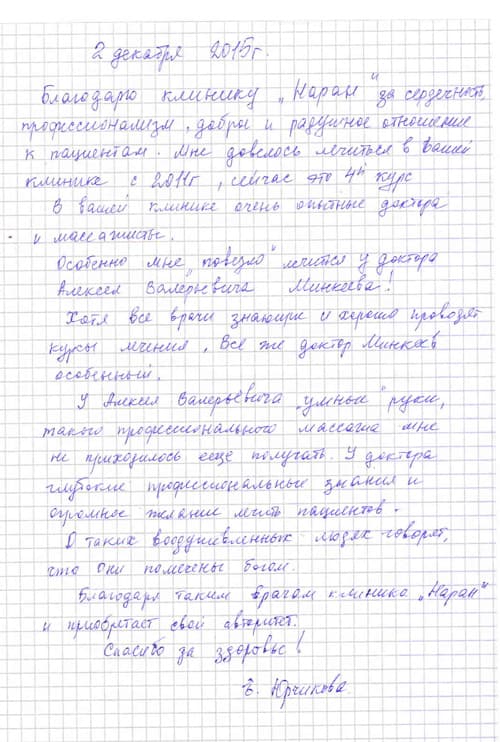 2 декабря 2015г.
Благодарю клинику „Наран" за сердечность,
профессионализм, доброе и радушное отношение
к пациентам. Мне довелось лечиться в Вашей
клинике с 2011г, сейчас это 4й курс
В вашей клинике очень опытные доктора
и массажисты.
Особенно мне „повезло" лечиться у доктора
Алексея Валерьевича Минкеева!
Хотя все врачи знающие и хорошо проводят
курсы лечения, все же доктор Минкеев
особенный.
У Алексея Валерьевича „умные" руки,
такого профессионального массажа мне
не приходилось еще получать. У доктора
глубокие профессиональные знания и
огромное желание лечить пациентов.
О таких воодушевленных людях говорят,
что они помечены богом.
Благодаря таким врачам клиника „Наран"
и приобретает свой авторитет.
Спасибо за здоровье!
Юрчикова